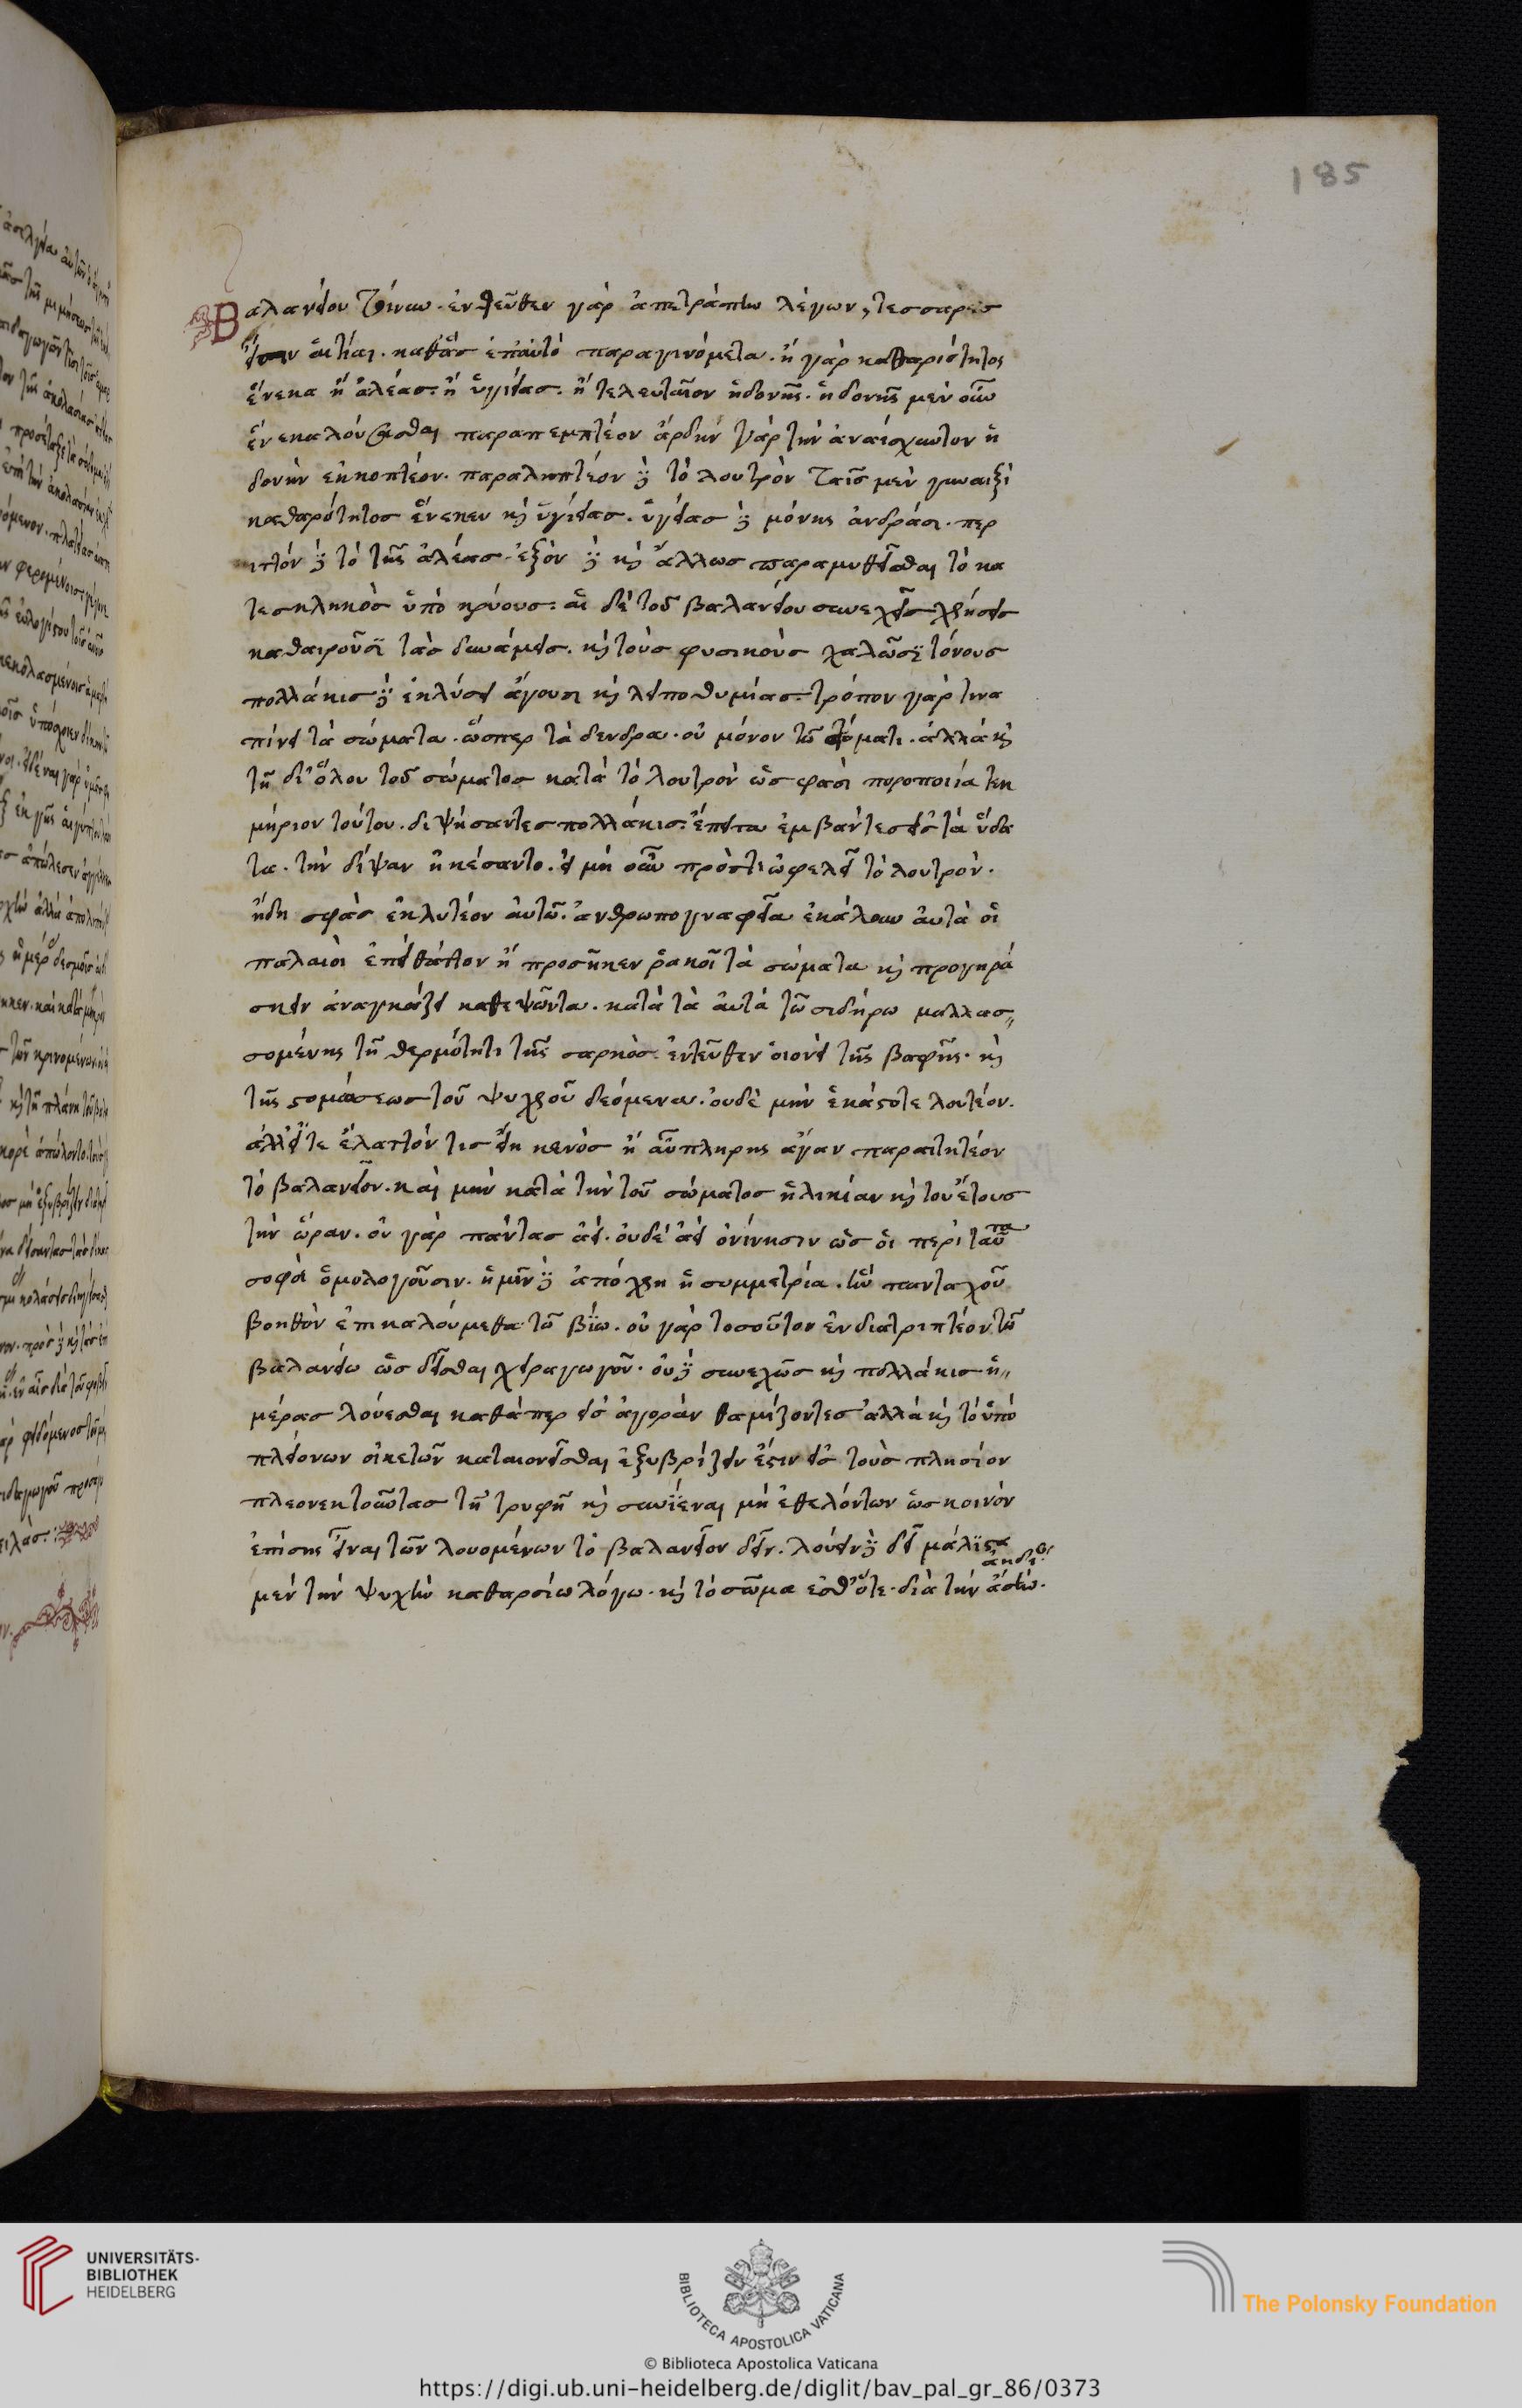 185
Βαλανείου τοίνυν. ἐντεῦθεν γὰρ ἀπετράπην λέγων, τέσσαρες
αἰτίαι. καθ' ἃς ἐπ' αὐτὸ παραγινόμεθα. ἢ γὰρ καθαριότητος
ἕνεκα ἢ ἀλέας. ἢ ὑγιείας. ἢ τελευταῖον ἡδονῆς. ἡδονῆς μὲν οὖν
ἕνεκα λούσασθαι παραπεμπτέον ἄρδην γὰρ τὴν ἀναίσχυντον ἡ
δονὴν ἐκκοπτέον. παραληπτέον δὲ τὸ λουτρὸν ταῖς μὲν γυναιξὶ
καθαρότητος ἕνεκεν καὶ ὑγιείας. ὑγείας δὲ μόνης ἀνδράσι. περ
ιττὸν δὲ τὸ τῆς ἀλέας. ἐξὸν δὲ καὶ ἄλλως παραμυθεῖσθαι τὸ κα
τεσκληκὸς ὑπὸ κρύους. αἱ δὲ τοῦ βαλανείου συνεχεῖς χρήσεις
καθαιροῦσι τὰς δυνάμεις. καὶ τοὺς φυσικοὺς χαλῶσι τόνους
πολλάκις δὲ ἐκλύσει ἄγουσι καὶ λειποθυμίας. τρόπον γὰρ τινα
πίνει τὰ σώματα. ὥσπερ τὰ δένδρα. οὐ μόνον τῶ στόματι. ἀλλὰ καὶ
τῇ δι' ὅλου τοῦ σώματος κατὰ τὸ λουτρὸν ὥς φασι ποροποιία τεκ
μήριον τούτου. διψήσαντες πολλάκις. ἔπειτα ἐμβάντες εἰς τὰ ὕδα
τα. τὴν δίψαν ἠκέσαντο. εἰ μὴ οὖν πρός τι ὠφελεῖ τὸ λουτρόν.
ἤδη σφᾶς ἐκλυτέον αὐτῶ. ἀνθρωπογναφεῖα ἐκάλουν αὐτὰ οἱ
παλαιοὶ ἐπεὶ θᾶττον ἢ προσῆκεν ῥακοῖ τὰ σώματα καὶ προγηρά
σκειν ἀναγκάζει καθεψῶντα. κατὰ τὰ αὐτὰ τῶ σιδήρω μαλασ
σομένης τῇ θερμότητι τῆς σαρκὸς. ἐντεῦθεν οἱονεὶ τῆς βαφῆς. καὶ
τῆς στομώσεως τοῦ ψυχροῦ δεόμενα. οὐδὲ μὴν ἑκάστοτε λουτέον.
ἀλλ' εἴτε ἔλαττόν τις εἴη κενὸς ἢ αὖ πλήρης ἄγαν παραιτητέον
τὸ βαλανεῖον. καὶ μὴν κατὰ τὴν τοῦ σώματος ἡλικίαν καὶ τοῦ ἔτους
τὴν ὥραν. οὐ γὰρ πάντας ἀεὶ. οὐδὲ ἀεὶ ὀνίνησιν ὡς οἱ περὶ ταῦτα
σοφοὶ ὁμολογοῦσιν. ἡμῖν δὲ ἀπόχρη ἡ συμμετρία. ἣν πανταχοῦ
βοηθὸν ἐπικαλούμεθα τῶ βίω. οὐ γὰρ τοσοῦτον ἐνδιατριπτέον τῶ
βαλανείω ὡς δεῖσθαι χειραγωγοῦ. οὐ δὲ συνεχῶς καὶ πολλάκις ἡ
μέρας λούεσθαι καθάπερ εἰς ἀγορὰν θαμίζοντες ἀλλὰ καὶ τὸ ὑπὸ
πλειόνων οἰκετῶν καταιονεῖσθαι ἐξυβρίζειν ἐστὶν εἰς τοὺς πλησίον
πλεονεκτοῦντας τῇ τρυφῇ καὶ συνιέναι μὴ ἐθελόντων ὡς κοινὸν
ἐπίσης εἶναι τῶν λουομένων τὸ βαλανεῖον δεῖν. λούειν δὲ δεῖ μάλιστα
μὲν τὴν ψυχὴν καθαρσίω λόγω. καὶ τὸ σῶμα ἔσθ' ὅτε. διὰ τὴν
UNIVERSITÄTS-
BIBLIOTHEK
HEIDELBERG
BIBLIOTECA APOSTOLICA VATICANA
The Polonsky Foundation
© Biblioteca Apostolica Vaticana
https://digi.ub.uni-heidelberg.de/diglit/bav_pal_gr_86/0373